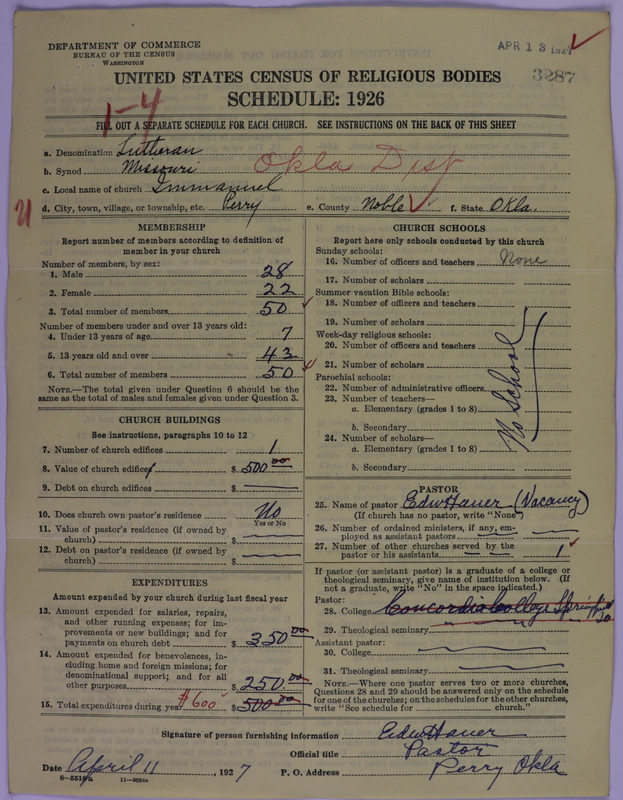 DEPARTMENT OF COMMERCE
BUREAU OF THE CENSUS
WASHINGTON
APR 13 1927
3287
UNITED STATES CENSUS OF RELIGIOUS BODIES
SCHEDULE: 1926
1-4
FILL OUT A SEPARATE SCHEDULE FOR EACH CHURCH. SEE INSTRUCTIONS ON THE BACK OF THIS SHEET
a. Denomination Lutheran
b. Synod Missouri
Okla Dist
c. Local name of church Immanuel
d. City, town, village, or township, etc. Perry e. County Noble f. State Okla.
MEMBERSHIP
Report number of members according to definition of
member in your church
Number of members, by sex:
1. Male 28
2. Female 22
3. Total number of members 50
Number of members under and over 13 years old:
4. Under 13 years of age 7
5. 13 years old and over 43
6. Total number of members 50
NOTE.—The total given under Question 6 should be
same as the total of males and females given under Question 3.
CHURCH BUILDINGS
See instructions, paragraphs 10 to 12
7. Number of church edifices 1
8. Value of church edifices $ 500 00
9. Debt on church edifices $
10. Does church own pastor's residence? No
Yes or No
11. Value of pastor's residence (if owned by
church) $
12. Debt on pastor's residence (if owned by
church) $
EXPENDITURES
Amount expended by your church during last fiscal year
13. Amount expended for salaries, repairs,
and other running expenses; for im-
provements or new buildings; and for
payments on church debt $ 350 00
14. Amount expended for benevolences, in-
cluding home and foreign missions; for
denominational support; and for all
other purposes $ 250.00
15. Total expenditures during year $600 $ 500 00
CHURCH SCHOOLS
Report here only schools conducted by this church
Sunday schools:
16. Number of officers and teachers None
17. Number of scholars
Summer vacation Bible schools:
18. Number of officers and teachers
19. Number of scholars
Week-day religious schools:
20. Number of officers and teachers
21. Number of scholars
Parochial schools:
22. Number of administrative officers
23. Number of teachers—
a. Elementary (grades 1 to 8)
b. Secondary
24. Number of scholars—
a. Elementary (grades 1 to 8)
b. Secondary
No School
PASTOR
25. Name of pastor Edw Hauer (Vacancy)
(If church has no pastor, write "None")
26. Number of ordained ministers, if any, em-
ployed as assistant pastors
27. Number of other churches served by the
pastor or his assistants 1
If pastor (or assistant pastor) is a graduate of a college or
theological seminary, give name of institution below. (If
not a graduate, write "No" in the space indicated.)
Pastor:
28. College Concordia College Springfield
29. Theological seminary
Assistant pastor:
30. College
31. Theological seminary
NOTE.—Where one pastor serves two or more churches,
Questions 28 and 29 should be answered only on the schedule
for one of the churches; on the schedules for the other churches,
write "See schedule for church."
Signature of person furnishing information Edw Hauer
Official title Pastor
Date April 11, 1927 P. O. Address Perry Okla